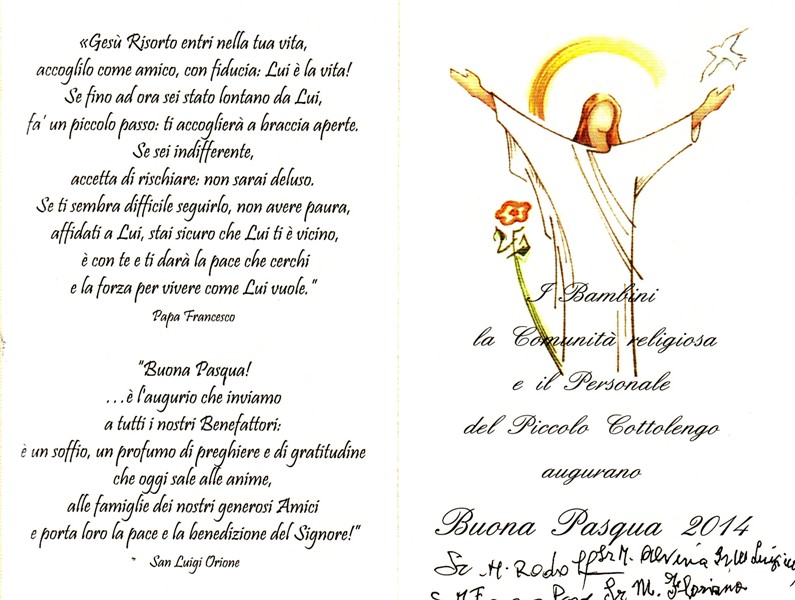 «Gesù Risorto entri nella tua vita,
accoglilo come amico, con fiducia: Lui è la vita!
Se fino ad ora sei stato lontano da Lui,
fa' un piccolo passo: ti accoglierà a braccia aperte.
Se sei indifferente,
accetta di rischiare: non sarai deluso.
Se ti sembra difficile seguirlo, non avere paura,
affidati a Lui, stai sicuro che Lui ti è vicino,
è con te e ti darà la pace che cerchi
e la forza per vivere come Lui vuole."
Papa Francesco
"Buona Pasqua!
...è l'augurio che inviamo
a tutti i nostri Benefattori:
è un soffio, un profumo di preghiere e di gratitudine
che oggi sale alle anime,
alle famiglie dei nostri generosi Amici
e porta loro la pace e la benedizione del Signore!"
San Luigi Orione
I Bambini
la Comunità religiosa
e il Personale
del Piccolo Cottolengo
augurano
Buona Pasqua 2014
Sr M. Sr M.
Sr M. Floriana